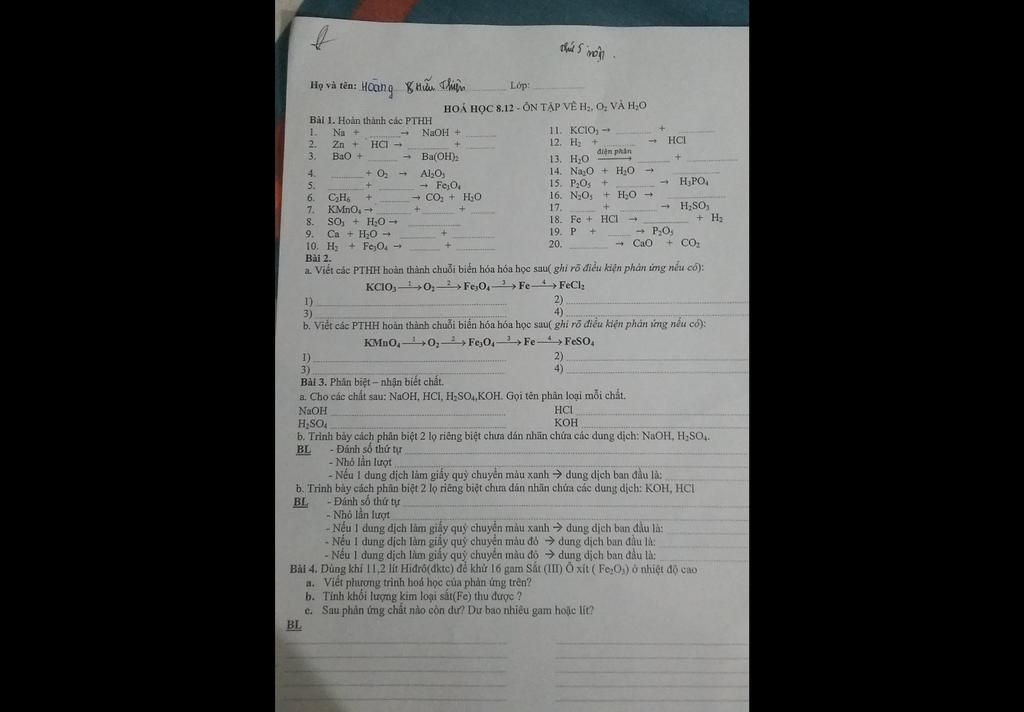 thứ 5 nộp.
Họ và tên: Hoàng Hữu Thiện Lớp:
HOÁ HỌC 8.12 - ÔN TẬP VỀ H₂, O₂ VÀ H₂O
Bài 1. Hoàn thành các PTHH
1. Na + → NaOH +
2. Zn + HCl → +
3. BaO + → Ba(OH)₂
4. + O₂ → Al₂O₃
5. + → Fe₃O₄
6. C₂H₆ + → CO₂ + H₂O
7. KMnO₄ → + +
8. SO₃ + H₂O →
9. Ca + H₂O → +
10. H₂ + Fe₃O₄ → +
11. KClO₃ → +
12. H₂ + → HCl
13. H₂O điện phân → +
14. Na₂O + H₂O →
15. P₂O₅ + → H₃PO₄
16. N₂O₅ + H₂O →
17. + → H₂SO₃
18. Fe + HCl → + H₂
19. P + → P₂O₅
20. → CaO + CO₂
Bài 2.
a. Viết các PTHH hoàn thành chuỗi biến hóa hóa học sau( ghi rõ điều kiện phản ứng nếu có):
KClO₃ —1→ O₂ —2→ Fe₃O₄ —3→ Fe —4→ FeCl₂
1) 2)
3) 4)
b. Viết các PTHH hoàn thành chuỗi biến hóa hóa học sau( ghi rõ điều kiện phản ứng nếu có):
KMnO₄ —1→ O₂ —2→ Fe₃O₄ —3→ Fe —4→ FeSO₄
1) 2)
3) 4)
Bài 3. Phân biệt – nhận biết chất.
a. Cho các chất sau: NaOH, HCl, H₂SO₄,KOH. Gọi tên phân loại mỗi chất.
NaOH HCl
H₂SO₄ KOH
b. Trình bày cách phân biệt 2 lọ riêng biệt chưa dán nhãn chứa các dung dịch: NaOH, H₂SO₄.
BL - Đánh số thứ tự
- Nhỏ lần lượt
- Nếu 1 dung dịch làm giấy quỳ chuyển màu xanh → dung dịch ban đầu là:
b. Trình bày cách phân biệt 2 lọ riêng biệt chưa dán nhãn chứa các dung dịch: KOH, HCl
BL - Đánh số thứ tự
- Nhỏ lần lượt
- Nếu 1 dung dịch làm giấy quỳ chuyển màu xanh → dung dịch ban đầu là:
- Nếu 1 dung dịch làm giấy quỳ chuyển màu đỏ → dung dịch ban đầu là:
- Nếu 1 dung dịch làm giấy quỳ chuyển màu đỏ → dung dịch ban đầu là:
Bài 4. Dùng khí 11,2 lít Hiđrô(đktc) để khử 16 gam Sắt (III) Ô xít ( Fe₂O₃) ở nhiệt độ cao
a. Viết phương trình hoá học của phản ứng trên?
b. Tính khối lượng kim loại sắt(Fe) thu được ?
c. Sau phản ứng chất nào còn dư? Dư bao nhiêu gam hoặc lít?
BL